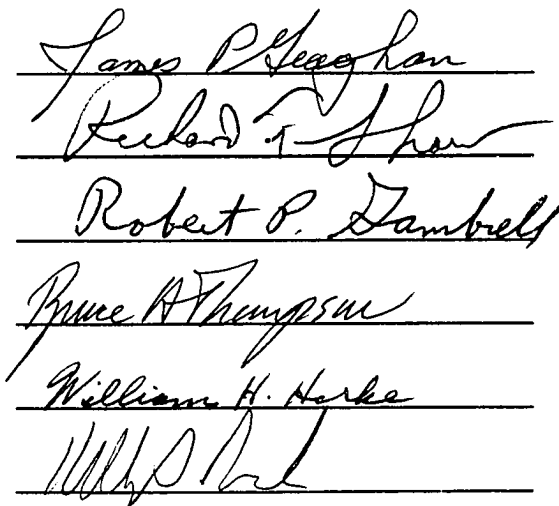 James P Geaghan
Richard F. Shaw
Robert P. Gambrell
Bruce A Thompson
William H. Herke